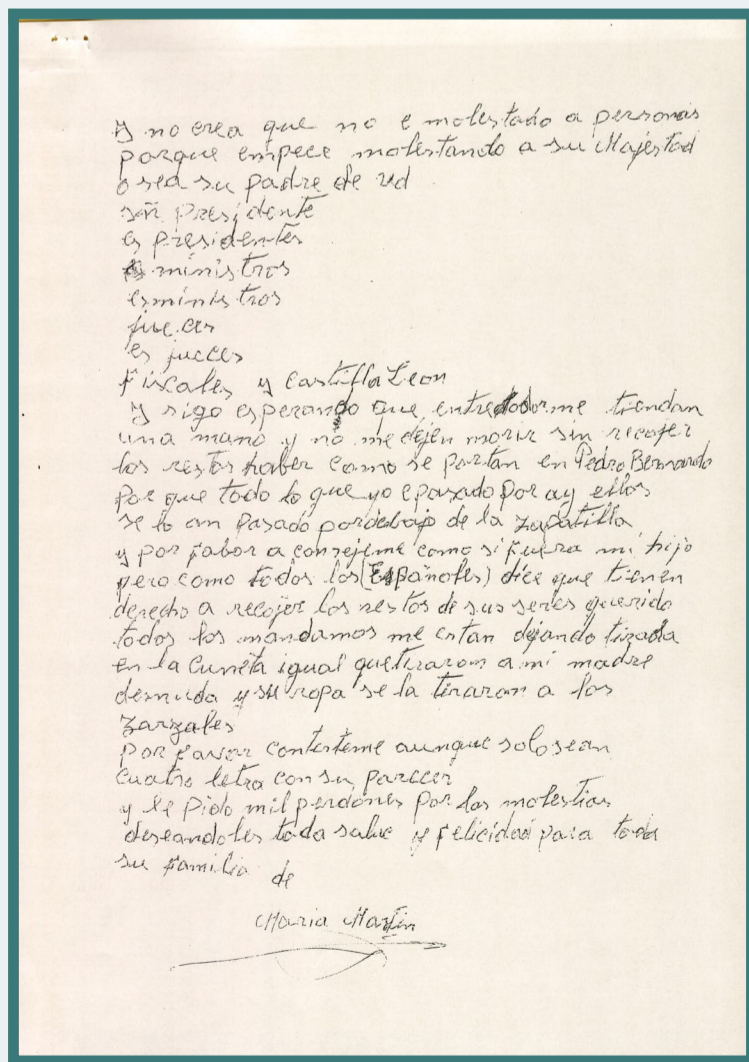 Y no crea que no e molestado a personas
porque empece molestando a su Majestad
o sea su padre de ud
señ Presidente
es presidentes
ministros
esministros
jueces
es jueces
Fiscales y Castilla Leon
Y sigo esperando que entretodosme tiendan
una mano y no me dejen morir sin recojer
los restos haber como se portan en Pedro Bernardo
Por que todo lo que yo e pasado por ay ellos
se lo an Pasado pordebajo de la zapatilla
y por fabor a consejeme como si fuera mi hijo
pero como todos los (Españoles) dice que tienen
derecho a recojer los restos de sus seres querido
todos los mandamos me estan dejando tirada
en la Cuneta igual quetiraron a mi madre
desnuda y su ropa se la tiraron a los
zarzales
por favor contesteme aunque solo sean
cuatro letra con su parecer
y le Pido mil perdones por las molestias
deseandoles toda salud y felicidad para toda
su familia de
Maria Martin